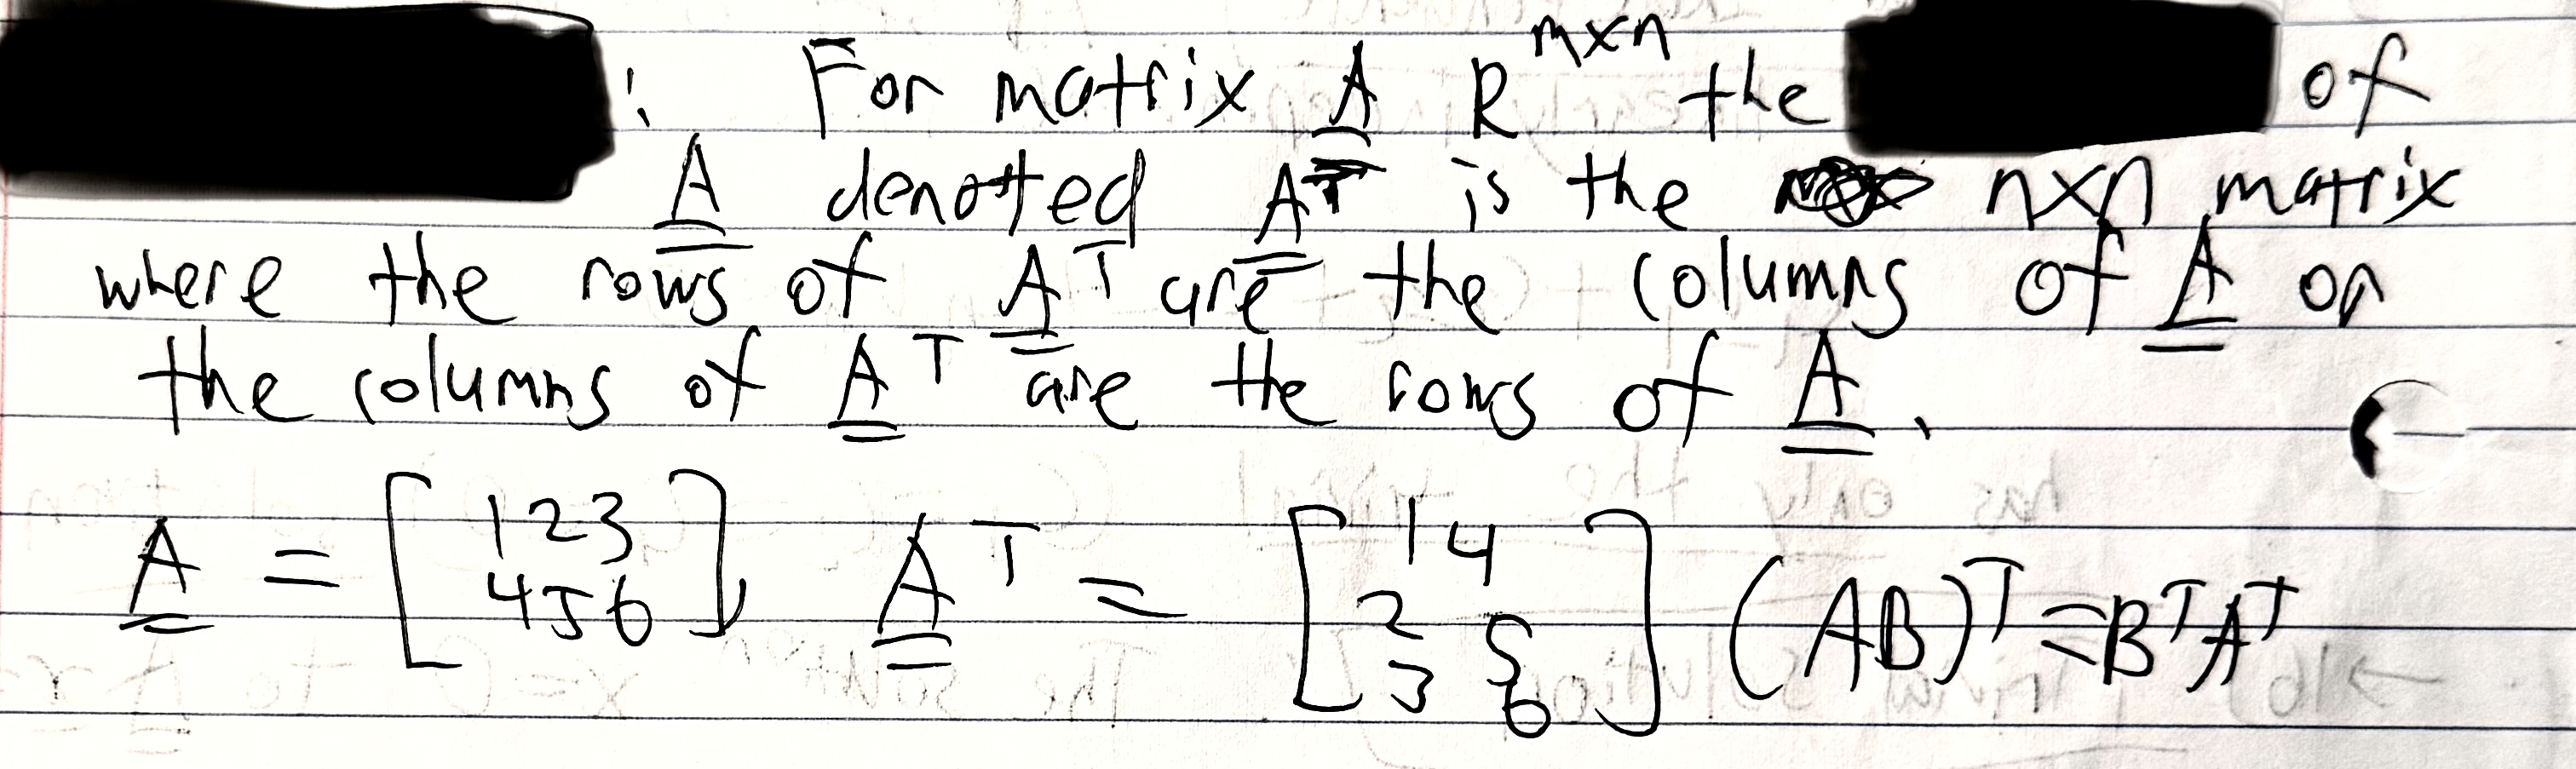 : For matrix A R^mxn the of
A denoted A^T is the nxn matrix
where the rows of A^T are the columns of A or
the columns of A^T are the rows of A.
A = [1 2 3
4 5 6], A^T = [1 4
2 5
3 6] (AB)^T = B^T A^T